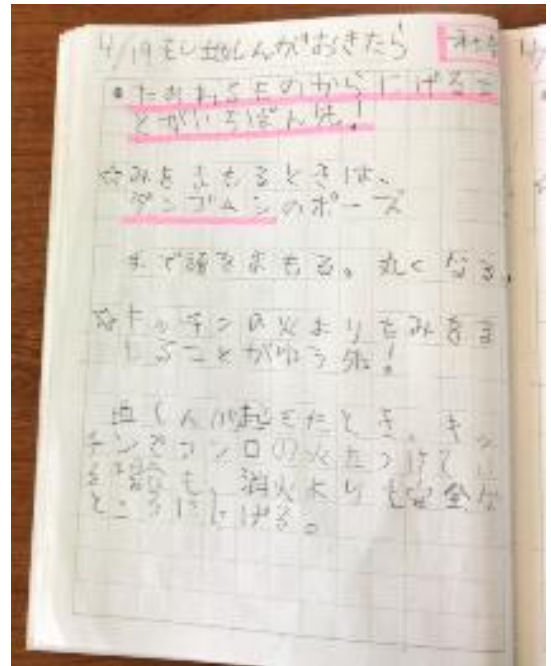 4/19 もし地しんがおきたら
・たおれるものからにげるこ
とがいちばん先!
☆みをまもるときは、
ダンゴムシのポーズ
手で頭をまもる。丸くなる。
☆キッチンの火よりもみをま
もることがゆう先!
地しんが起きたとき、キッ
チンでコンロの火をつけてい
る場合も、消火よりも安全な
ところににげる。